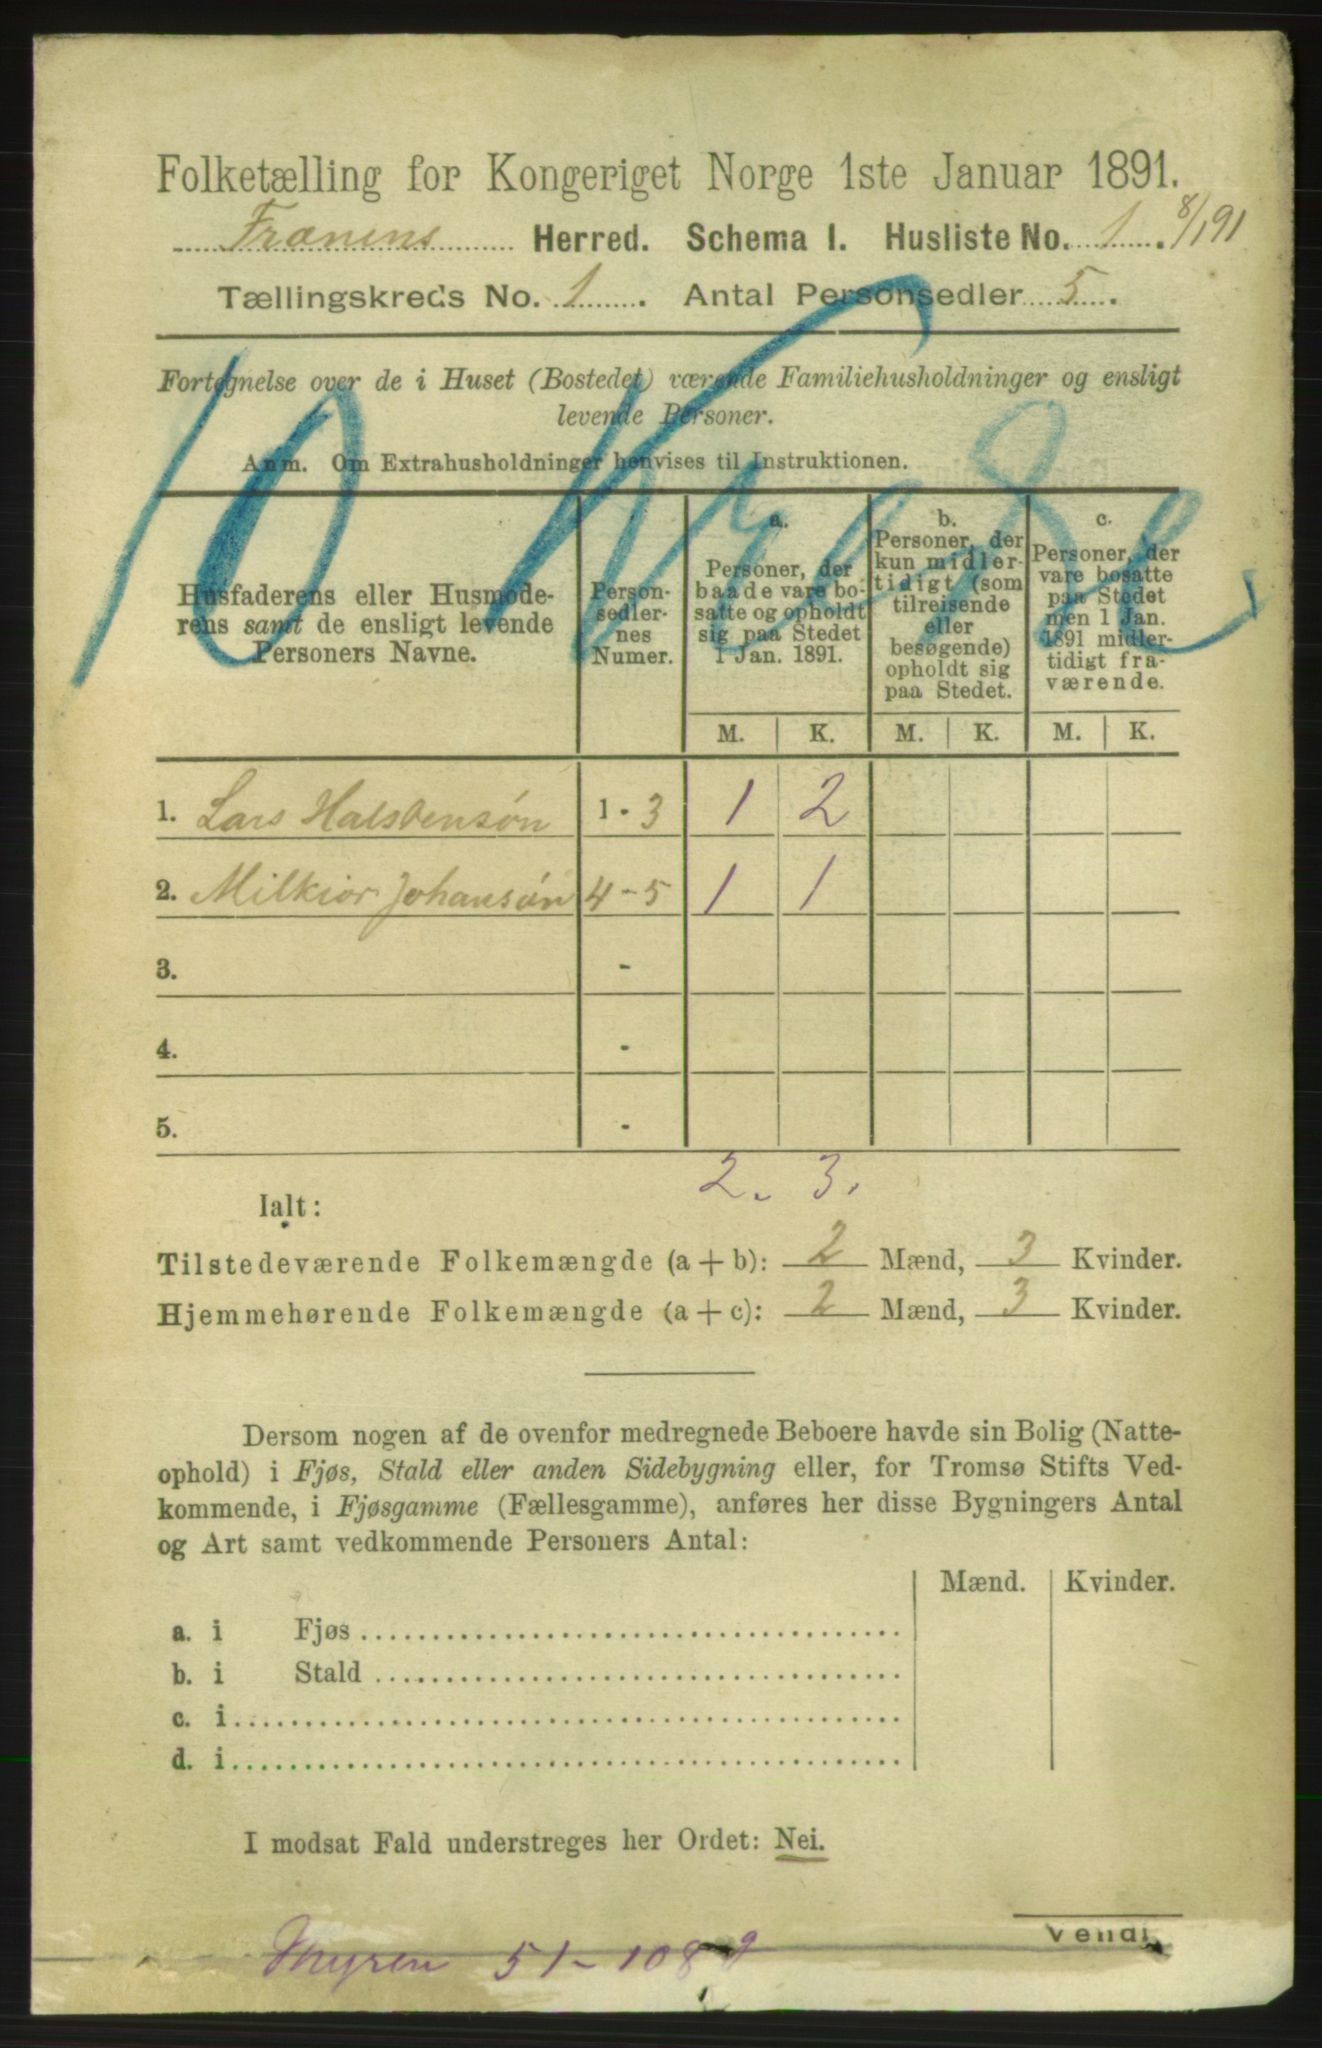 Folketælling for Kongeriget Norge 1ste Januar 1891.
Frænens Herred. Schema I. Husliste No. 1. 8/1 91
Tællingskreds No. 1. Antal Personsedler 5.
Fortegnelse over de i Huset (Bostedet) værende Familiehusholdninger og ensligt
levende Personer.
Anm. Om Extrahusholdninger henvises til Instruktionen.
10 Kreds
Husfaderens eller Husmode-
rens samt de ensligt levende
Personers Navne.
Person-
sedler-
nes
Numer.
a.
Personer, der
baade vare bo-
satte og opholdt
sig paa Stedet
1 Jan. 1891.
b.
Personer, der
kun midler-
tidigt (som
tilreisende
eller
besøgende)
opholdt sig
paa Stedet.
c.
Personer, der
vare bosatte
paa Stedet
men 1 Jan.
1891 midler-
tidigt fra-
værende.
M. K. M. K. M. K.
1. Lars Halstensøn 1 - 3 1 2
2. Milkior Johansøn 4 - 5 1 1
3. -
4. -
5. -
2. 3.
Ialt:
Tilstedeværende Folkemængde (a + b): 2 Mænd, 3 Kvinder.
Hjemmehørende Folkemængde (a + c): 2 Mænd, 3 Kvinder.
Dersom nogen af de ovenfor medregnede Beboere havde sin Bolig (Natte-
ophold) i Fjøs, Stald eller anden Sidebygning eller, for Tromsø Stifts Ved-
kommende, i Fjøsgamme (Fællesgamme), anføres her disse Bygningers Antal
og Art samt vedkommende Personers Antal:
Mænd. Kvinder.
a. i Fjøs
b. i Stald
c. i
d. i
I modsat Fald understreges her Ordet: Nei.
Vend!
Myren 51-108